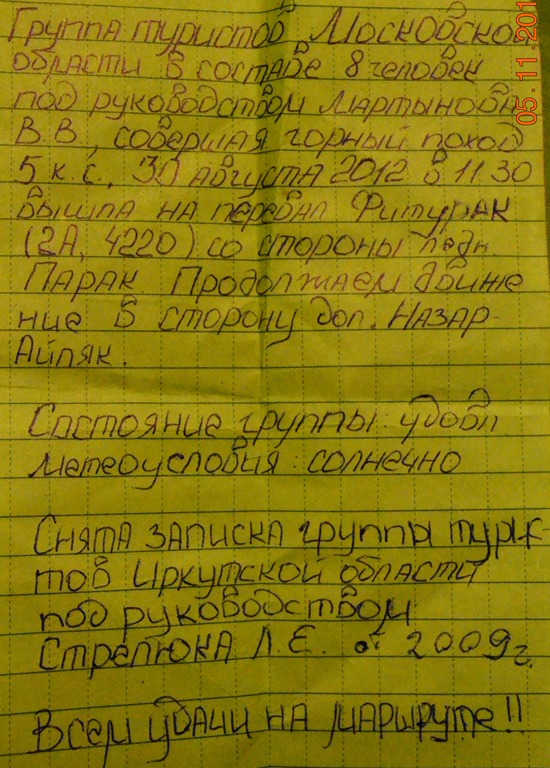 Группа туристов Московской
области в составе 8 человек
под руководством Мартынова
В.В., совершая горный поход
5 к.с., 30 августа 2012 в 11 30
вышла на перевал Фитурак
(2А, 4220) со стороны ледн.
Парак. Продолжаем движе
ние в сторону дол. Назар-
Айляк.
Состояние группы: удовл
метеоусловия: солнечно
Снята записка группы турис-
тов Иркутской области
под руководством
Стрелюка Л.Е. от 2009г.
Всем удачи на маршруте!!
05.11.201